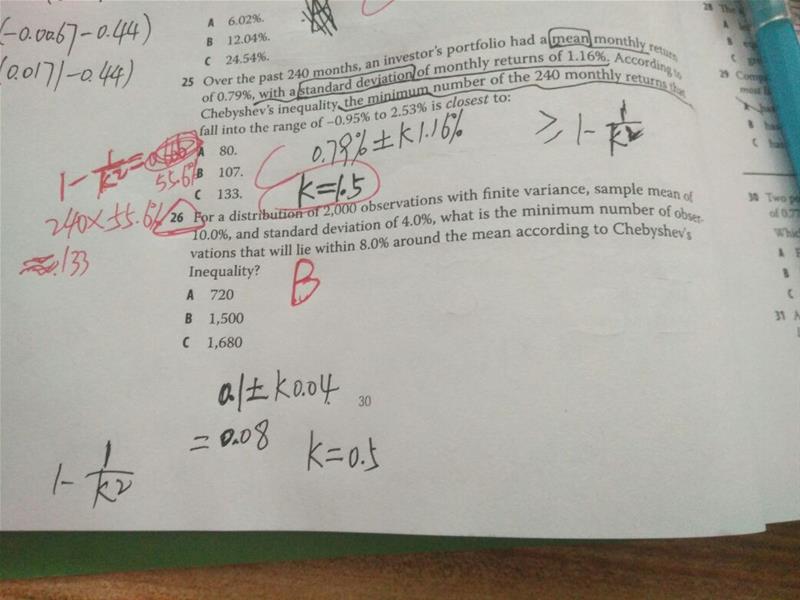 (-0.0067-0.44)
(0.0171-0.44)
A 6.02%.
B 12.04%.
C 24.54%.
25 Over the past 240 months, an investor's portfolio had a mean monthly return
of 0.79%, with a standard deviation of monthly returns of 1.16%. According to
Chebyshev's inequality, the minimum number of the 240 monthly returns that
fall into the range of −0.95% to 2.53% is closest to:
A 80.
B 107.
C 133.
0.79% ± K1.16%
≥ 1 - 1/K2
K=1.5
55.6%
240 × 55.6%
≈ 133
26 For a distribution of 2,000 observations with finite variance, sample mean of
10.0%, and standard deviation of 4.0%, what is the minimum number of obser-
vations that will lie within 8.0% around the mean according to Chebyshev's
Inequality?
B
A 720
B 1,500
C 1,680
0.1 ± K0.04
= 0.08
K=0.5
1 - 1/K2
30
28 The
A
B
29
A
B
C
30 Two
of 0.7
Which
A
B
C
31